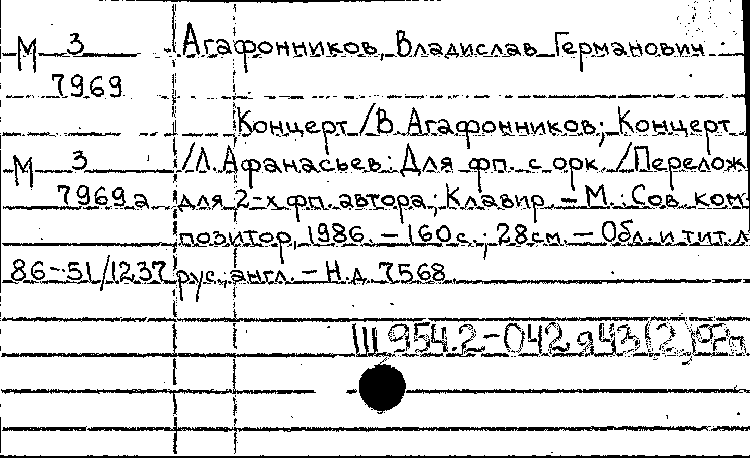 М 3 Агафонников, Владислав Германович.
7969
Концерт /В. Агафонников; Концерт
М 3 /Л. Афанасьев: Для фп. с орк. /Перелож
7969а для 2-х фп. автора; Клавир. — М.: Сов. ком-
позитор, 1986. — 160с.; 28см. — Обл. и тит. л
86-51/1237 рус., англ. — Н.д. 7568.
Ш 954.2-042 я43(2)